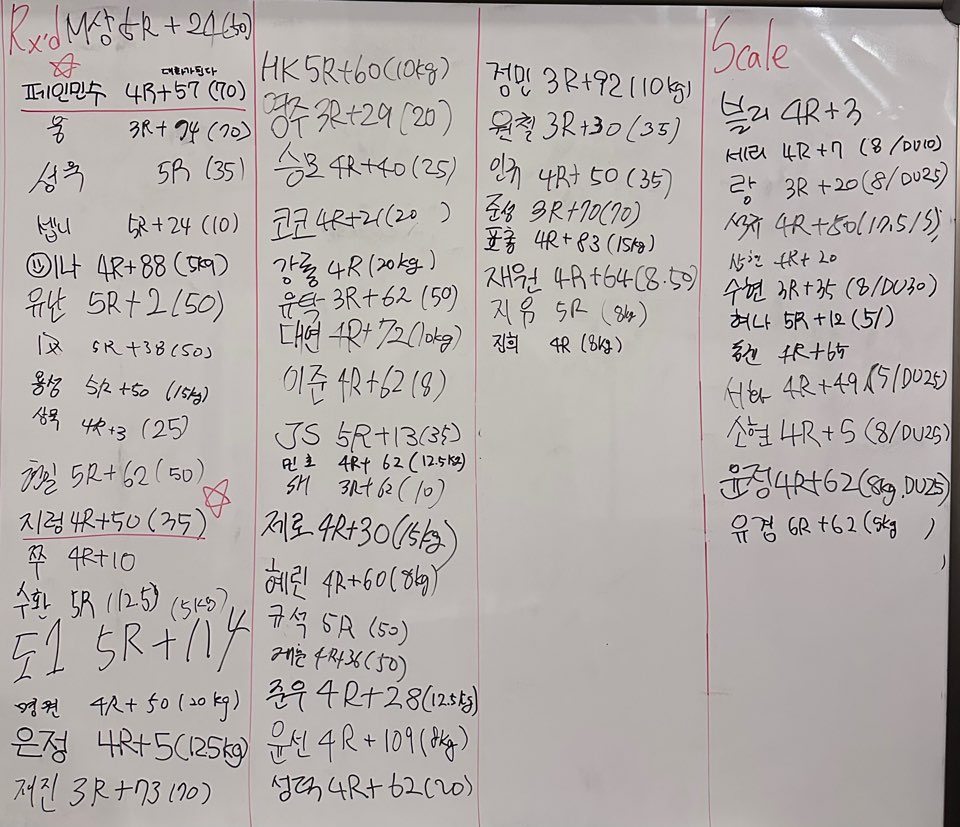 Rx'd M상 5R + 24(50)
대화가된다
페인민수 4R+57 (70)
웅 3R + 94 (70)
성욱 5R (35)
벱니 5R+24 (10)
이나 4R+88 (5kg)
유난 5R+2 (50)
5R+38(50)
용성 5R+50 (15kg)
상목 4R+3 (25)
현밀 5R+62(50)
지렁 4R+50 (35)
쭈 4R+10
수환 5R (12.5) (5kg)
도1 5R+114
영현 4R+50 (20kg)
은정 4R+5(12.5kg)
재진 3R+73(70)
HK 5R+60(10kg)
영주 3R+29 (20)
승모 4R+40 (25)
코코 4R+21(20 )
강릉 4R(20kg)
유탁 3R+62 (50)
대연 4R+72(10kg)
이준 4R+62(8)
JS 5R+13(35)
민호 4R+ 62 (12.5kg)
SH 3R+62(10)
제로 4R+30(15kg)
혜린 4R+60(8kg)
규석 5R (50)
4R+36(50)
준우 4R+28(12.5kg)
윤선 4R+109(8kg)
성덕 4R+62(20)
정민 3R+92(10kg)
원철 3R+30 (35)
인규 4R+50(35)
준성 3R+70(70)
포충 4R+83 (15kg)
재원 4R+64(8.50)
지유 5R (8kg)
진희 4R (8kg)
Scale
블리 4R+3
세리 4R+7 (8/DU10)
랑 3R+20(8/DU25)
석규 4R+50(17.5/S)
상현 4R+20
수현 3R+35 (8/DU30)
혀나 5R+12 (5/)
4R+65
서하 4R+49 (5/DU25)
소현 4R+5 (8/DU25)
윤정 4R+62(8kg.DU25)
유경 6R+62(5kg )